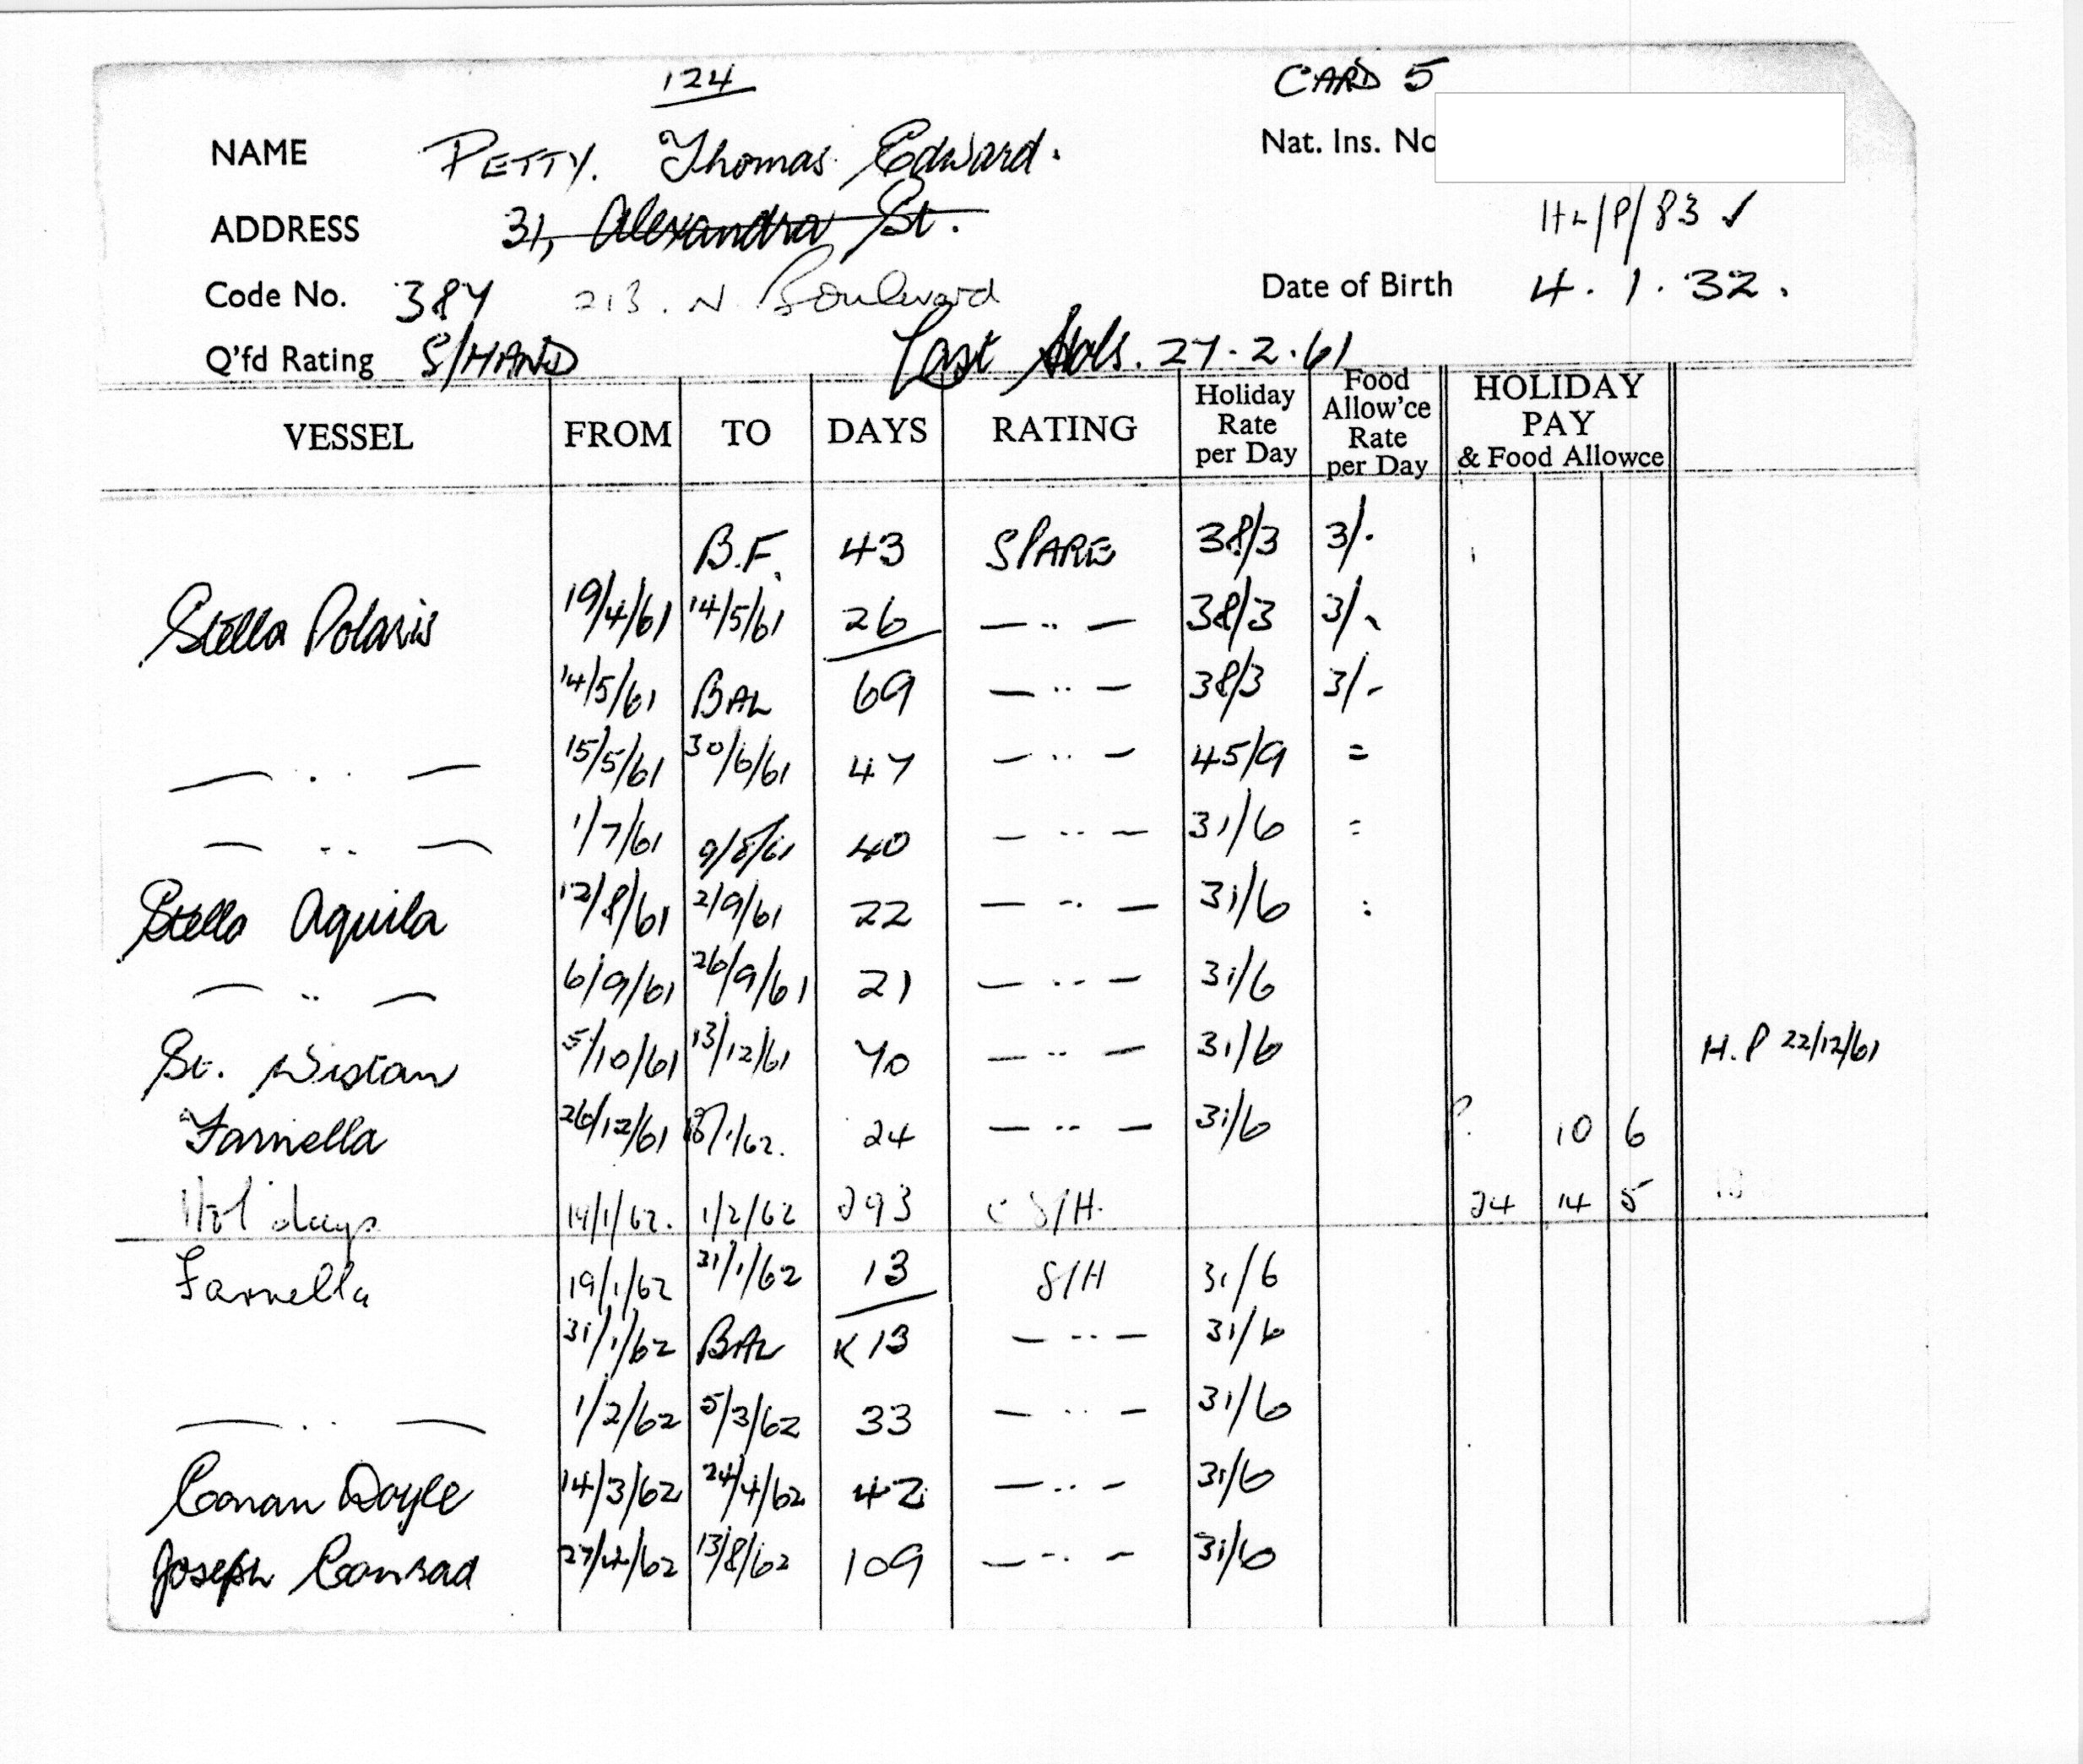 124 CARD 5
NAME PETTY. Thomas Edward. Nat. Ins. No
ADDRESS 31, Alexandra St. HL/P/83 ✓
Code No. 387 213. N. Boulevard Date of Birth 4.1.32.
Q'fd Rating S/HAND Last Hols. 27.2.61
VESSEL FROM TO DAYS RATING Holiday Rate per Day Food Allow'ce Rate per Day HOLIDAY PAY & Food Allowce
B.F. 43 SPARE 38/3 3/-
Stella Polaris 19/4/61 14/5/61 26 — " — 38/3 3/-
14/5/61 BAL 69 — " — 38/3 3/-
— " — 15/5/61 30/6/61 47 — " — 45/9 =
— " — 1/7/61 9/8/61 40 — " — 31/6 =
Stella Aquila 12/8/61 2/9/61 22 — " — 31/6 :
— " — 6/9/61 26/9/61 21 — " — 31/6
St. Wistan 5/10/61 13/12/61 70 — " — 31/6 H.P 22/12/61
Farnella 26/12/61 18/1/62. 24 — " — 31/6 10 6
Holidays 19/1/62. 1/2/62 293 S/H. 24 14 5
Farnella 19/1/62 31/1/62 13 S/H 31/6
31/1/62 BAL K 13 — " — 31/6
— " — 1/2/62 5/3/62 33 — " — 31/6
Conan Doyle 14/3/62 24/4/62 42 — " — 31/6
Joseph Conrad 27/4/62 13/8/62 109 — " — 31/6